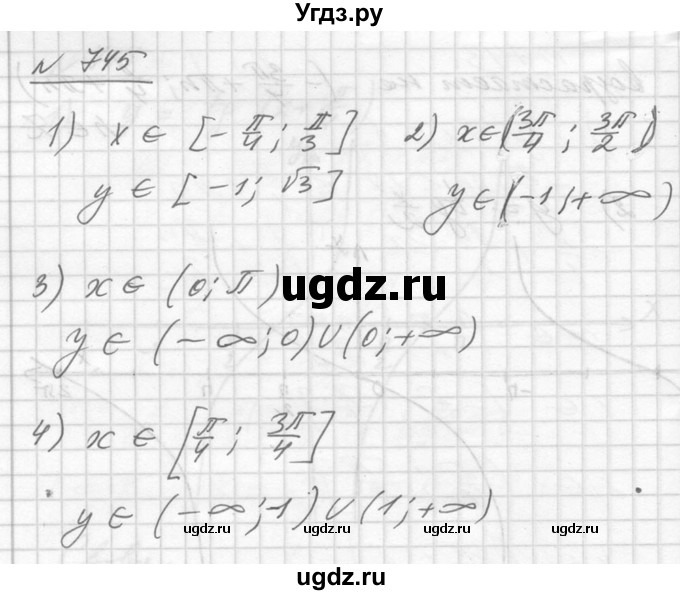 Угдз.ру
№ 745
1) x ∈ [-π/4; π/3]   2) x ∈ (3π/4; 3π/2)
y ∈ [-1; √3]   y ∈ (-1; +∞)
3) x ∈ (0; π)
ugdz.ru
y ∈ (-∞; 0) ∪ (0; +∞)
4) x ∈ [π/4; 3π/4]
y ∈ (-∞; -1) ∪ (1; +∞)
ugdz.ru ugdz.ru ugdz.ru ugdz.ru
ugdz.ru